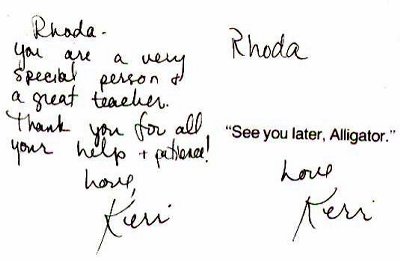 Rhoda-
you are a very
special person &
a great teacher.
Thank you for all
your help + patience!
Love,
Kerri
Rhoda
"See you later, Alligator."
Love
Kerri